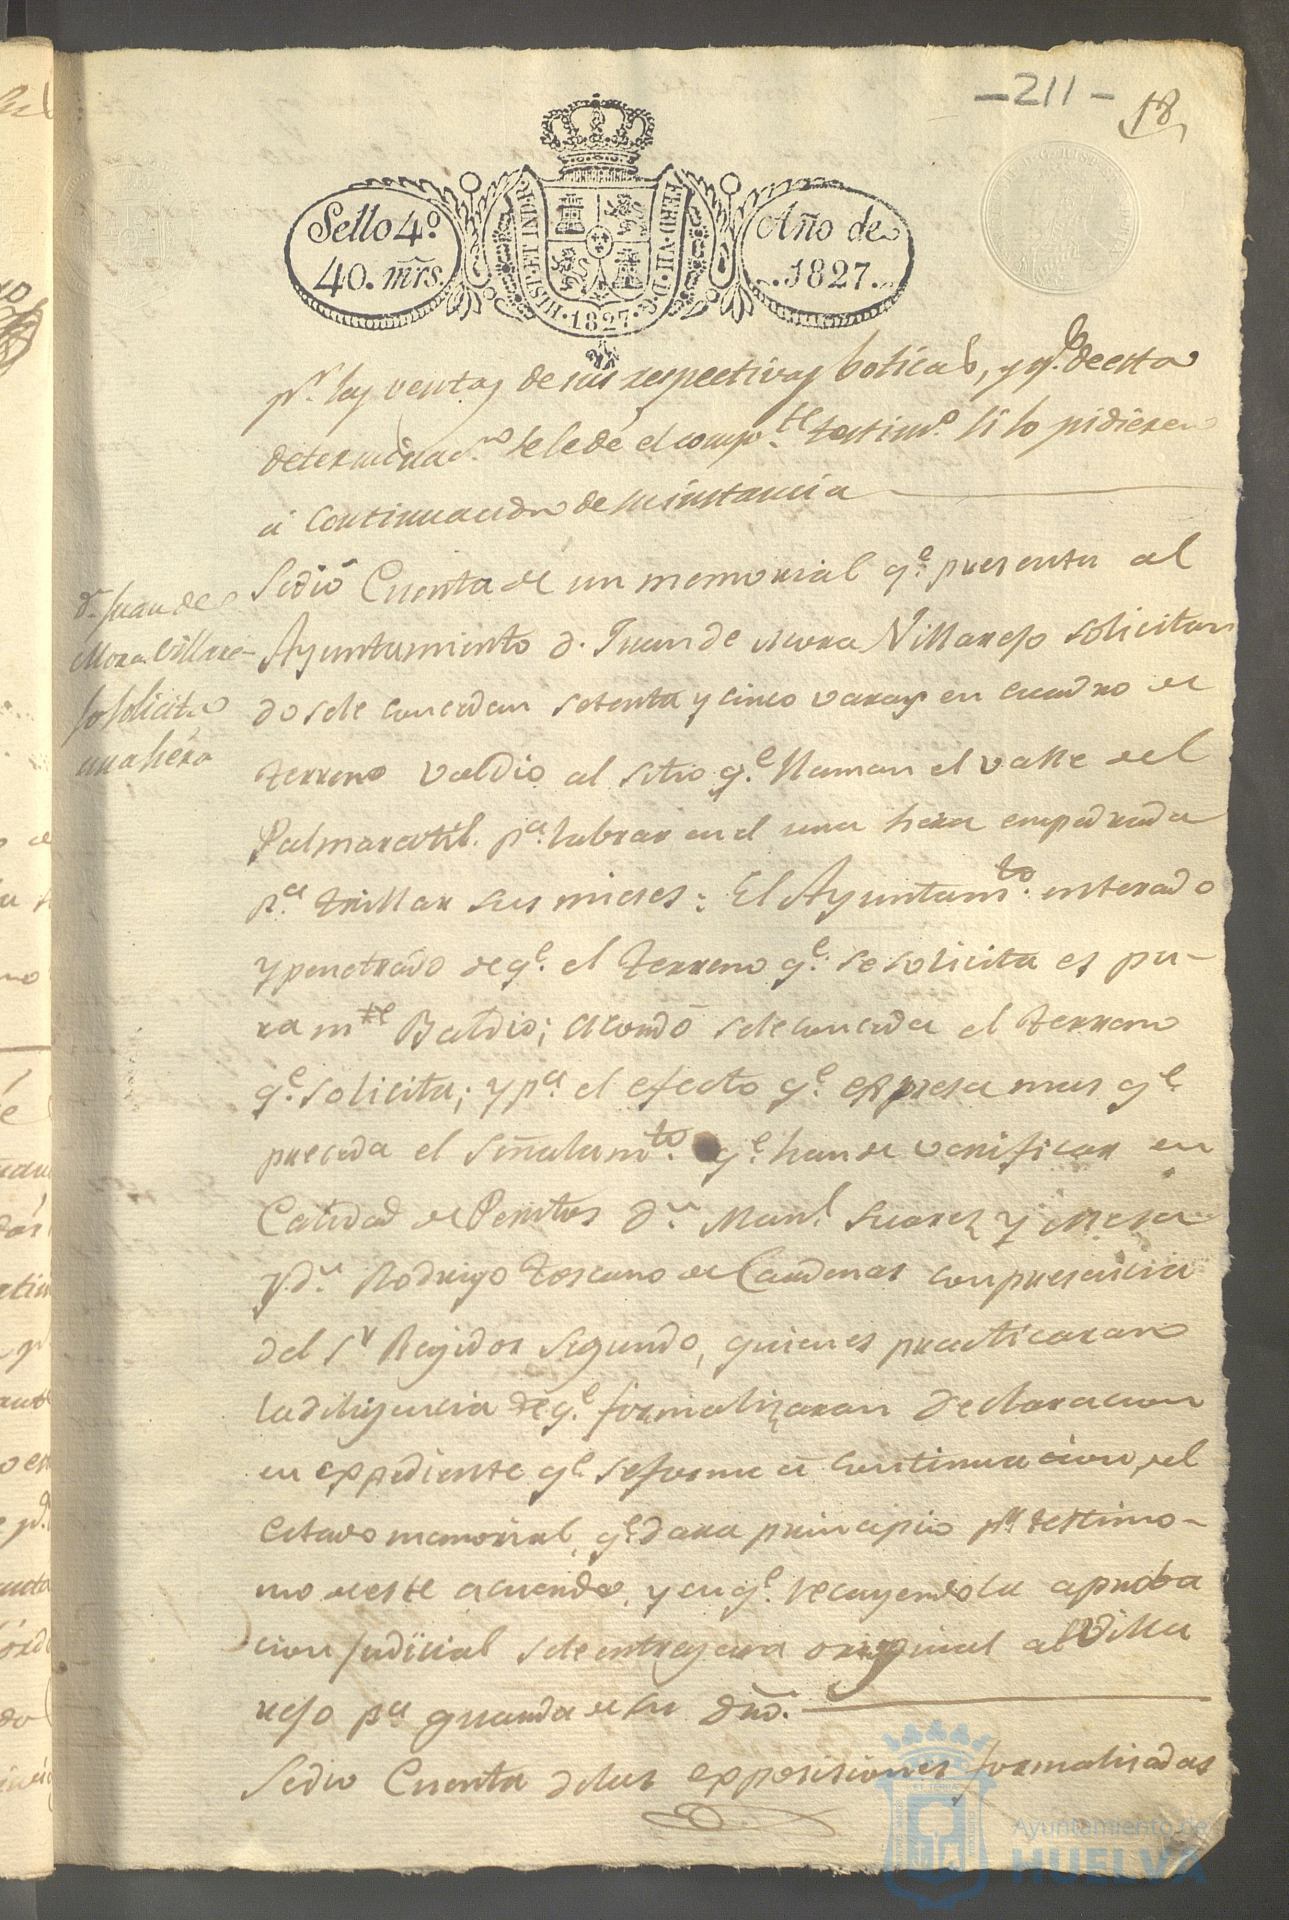 -211-
18
Sello 4º
40. mrs.
HISP. ET IND. R.
FERD. VII. D. G.
1827
Año de
1827.
pr. las ventas de sus respectivas boticas, y qe. de esta
determinacn. se le dé el compte. testimo. si lo pidieren
á continuacion de su instancia
Dn. Juan de
Mora Villare-
jo solicita
una hera
Sedió Cuenta de un memorial qe. presenta al
Ayuntamiento d. Juan de Mora Villarejo solicitan
do sele concedan setenta y cinco varas en cuadro de
terreno valdio al sitio qe. llaman el valle del
pa. labrar en el una hera empedrada
pa. trillar sus mieses: El Ayuntamto. enterado
y penetrado de qe. el terreno qe. se solicita es pu-
ramte Baldio; acordó sele conceda el terreno
qe. solicita; y pa. el efecto qe. expresa mas qe.
preceda el señalamto. qe. han de verificar en
Calidad de Peritos Dn. Manl. Suarez y Mesa
y Dn. Rodrigo Toscano de Cardenas con presencia
del Sr Regidor segundo, quienes practicaran
la diligencia de qe. formalizaran declaracion
en expediente qe. se forme á continuacion del
citado memorial, qe. dara principio pr. testimo-
nio de este acuerdo, y en qe. recayendo la aproba
cion judicial sele entregara original al Villa
rejo pa. guarda de su dro.
Sedio Cuenta delas exposiciones formalizadas
Ayuntamiento de
HUELVA